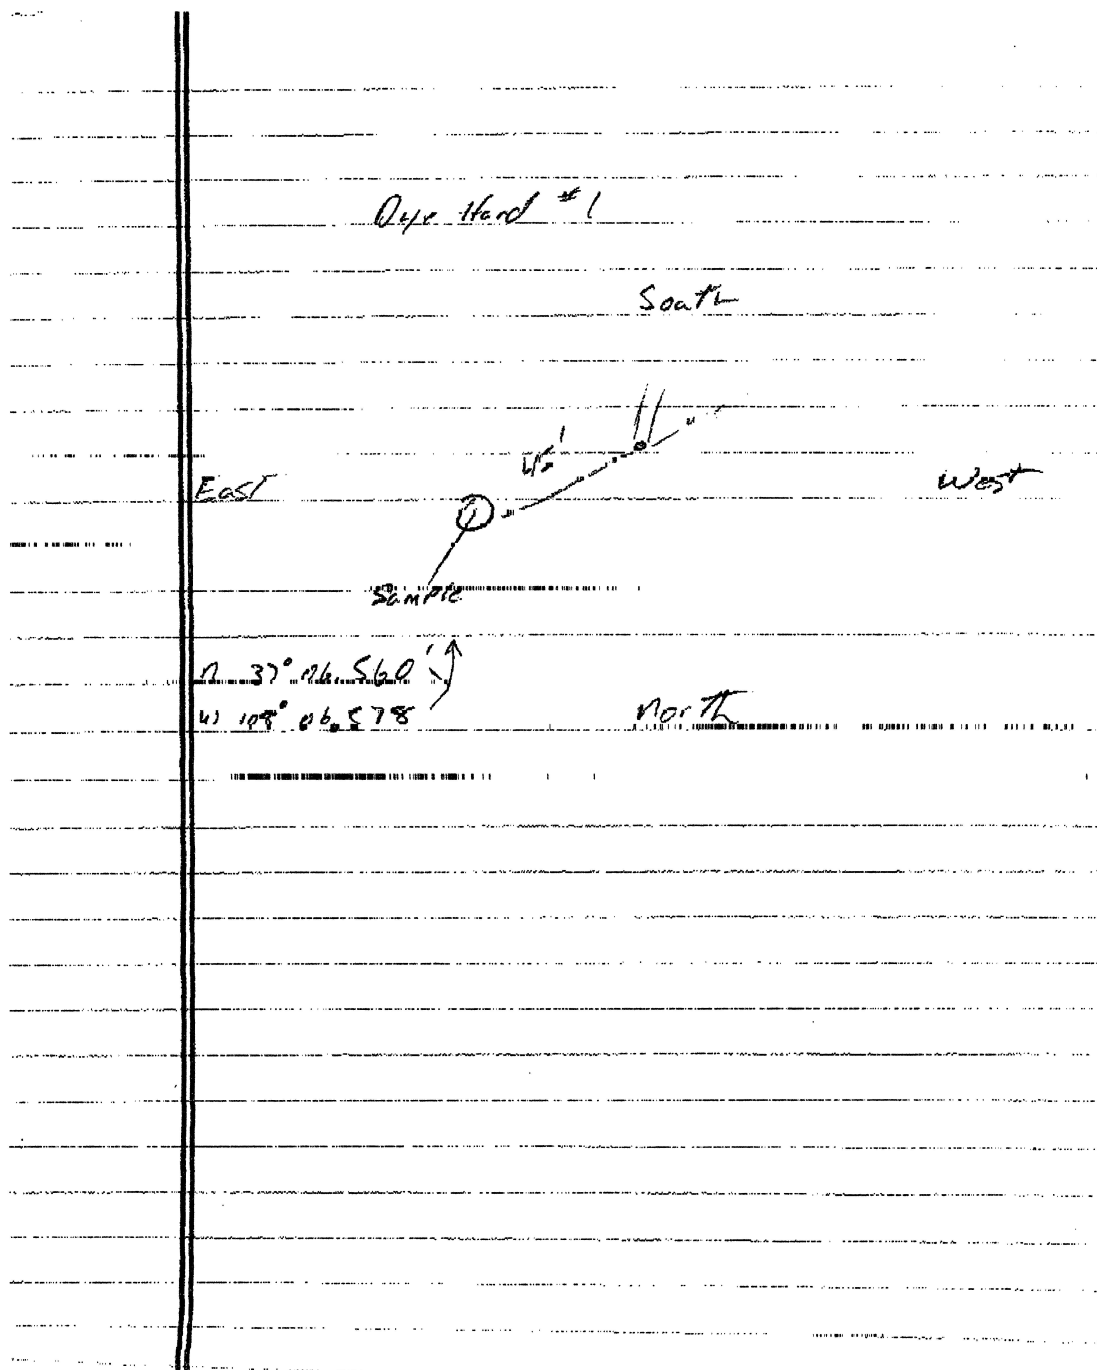 Dye Hard #1
South
45'
East
West
Sample
N 37° 06.560'
W 108° 06.578
North